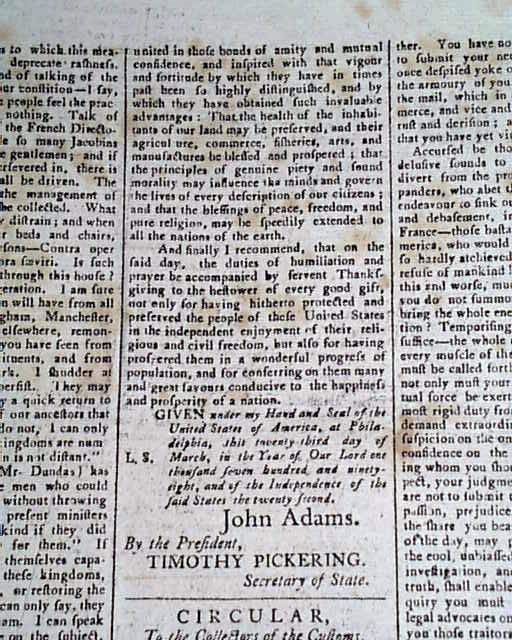 s to which this mea-
deprecate rashness,
nd of talking of the
ur condition—I say,
e people feel the prac-
nothing. Talk of
the French Directo-
le so many Jacobins
e gentlemen; and if
ersevered in, there is
all be driven. The
the management of
be collected. What
y distrain; and when
r beds and chairs,
rsons—Contra oper
ora sæviri. Is such
through this house?
eration. I am sure
n will have from all
gham, Manchester,
elsewhere, remon-
you have seen from
ituents, and from
rk. I shudder at
persist. They may
y a quick return to
f our ancestors that
do not, I can only
ingdoms are num
n is not distant."
Mr. Dundas) has
e men who could
without throwing
present ministers
kind if they did
for them." If
themselves capa-
these kingdoms,
or restoring the
can only say, they
am. I can speak
on the subject.
united in those bonds of amity and mutual
confidence, and inspired with that vigour
and fortitude by which they have in times
past been so highly distinguished, and by
which they have obtained such invaluable
advantages: That the health of the inhabi-
tants of our land may be preserved, and their
agriculture, commerce, fisheries, arts, and
manufactures be blessed and prospered; that
the principles of genuine piety and sound
morality may influence the minds and govern
the lives of every description of our citizens;
and that the blessings of peace, freedom, and
pure religion, may be speedily extended to
all the nations of the earth.
And finally I recommend, that on the
said day, the duties of humiliation and
prayer be accompanied by fervent Thanks-
giving to the bestower of every good gift,
not only for having hitherto protected and
preserved the people of these United States
in the independent enjoyment of their reli-
gious and civil freedom, but also for having
prospered them in a wonderful progress of
population, and for conferring on them many
and great favours conducive to the happiness
and prosperity of a nation.
GIVEN under my Hand and Seal of the
United States of America, at Phila-
delphia, this twenty-third day of
L. S. March, in the Year of Our Lord one
thousand seven hundred, and ninety-
eight, and of the Independence of the
said States the twenty second.
John Adams.
By the President,
TIMOTHY PICKERING.
Secretary of State.
CIRCULAR,
To the Collectors of the Customs.
ther. You have no
to submit your nec
once despised yoke o
the armoury of you
the mail, which is
merce, and vice and
rust and derision; a
that you have yet vi
Accursed be tho
delusive sounds to
divert from the pro
panders, who abet th
endeavour to sink ou
and debasement, in
France—those basta
merica, who would
so hardly atchieved
refuse of mankind!
this and worse, mu
you do not summon
bring the whole ene
tion? Temporising
suffice—the whole
every muscle of the
must be called forth
not only must your
tual force be exert
most rigid duty from
demand extraordin
suspicion on the on
confidence on the
ing whom you shou
pect, your judgmen
are not to submit t
passion, prejudice,
the share you bea
of the day, may p
the cool, unbiassed
investigation, and
truth, shall enable
quity you must
legal advocates on
you those traitors